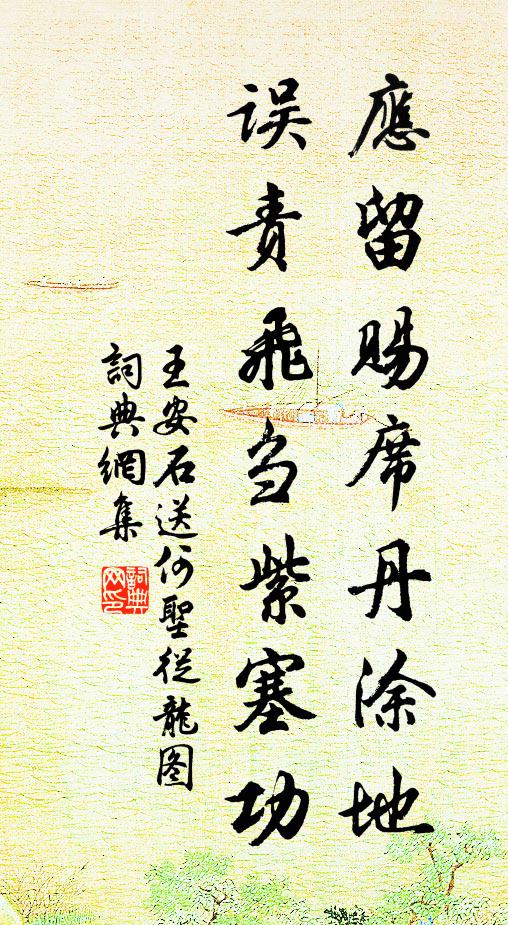 應留賜席丹涂地
误责飛刍紫塞功
王安石送何聖從龍图
詞典網集
詞典
网印